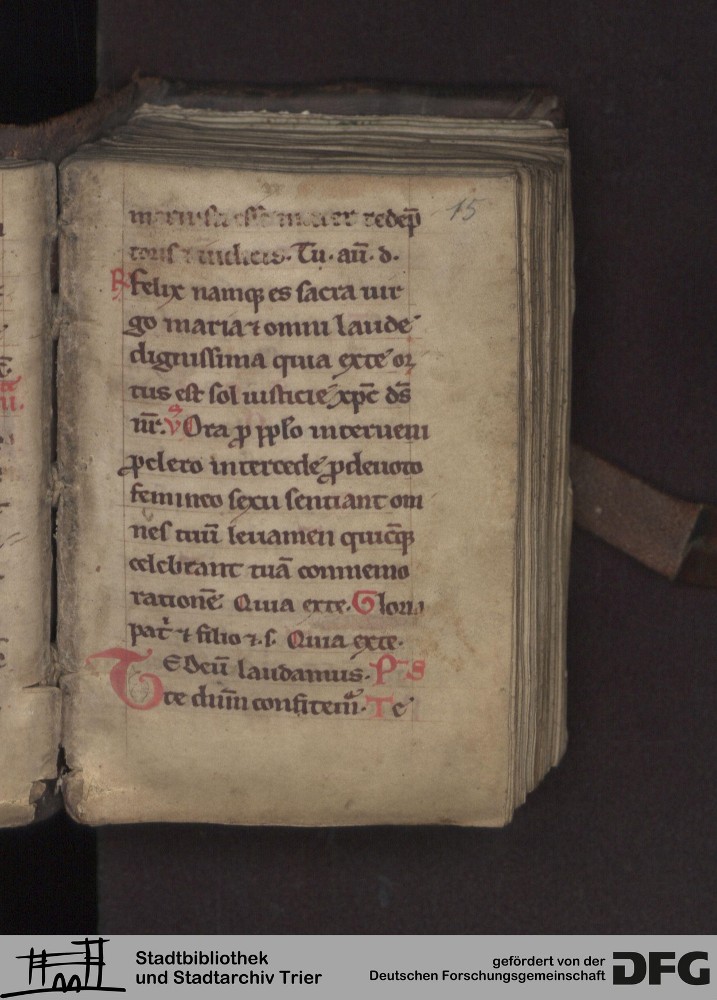 15
mater redēp̄
Tu· aū· d·
R̸ felix namq; es sacra uir
go maria ⁊ omni laude
dignissima quia ex te or
tus est sol iusticie xp̄c ds̄
nr̄· v̸ Ora p̄ pplo̅ interueni
ꝓ clero intercede ꝓ deuoto
femineo sexu sentiant om
nes tuū leuamen quicūq;
celebrant tuā conmemo
rationē Quia ex te· Gloria
pat̄ ⁊ filio ⁊ s· Quia ex te·
TE Deū laudamus· PS
te dn̄m confitem̄· Te
Stadtbibliothek
und Stadtarchiv Trier
gefördert von der
Deutschen Forschungsgemeinschaft
DFG